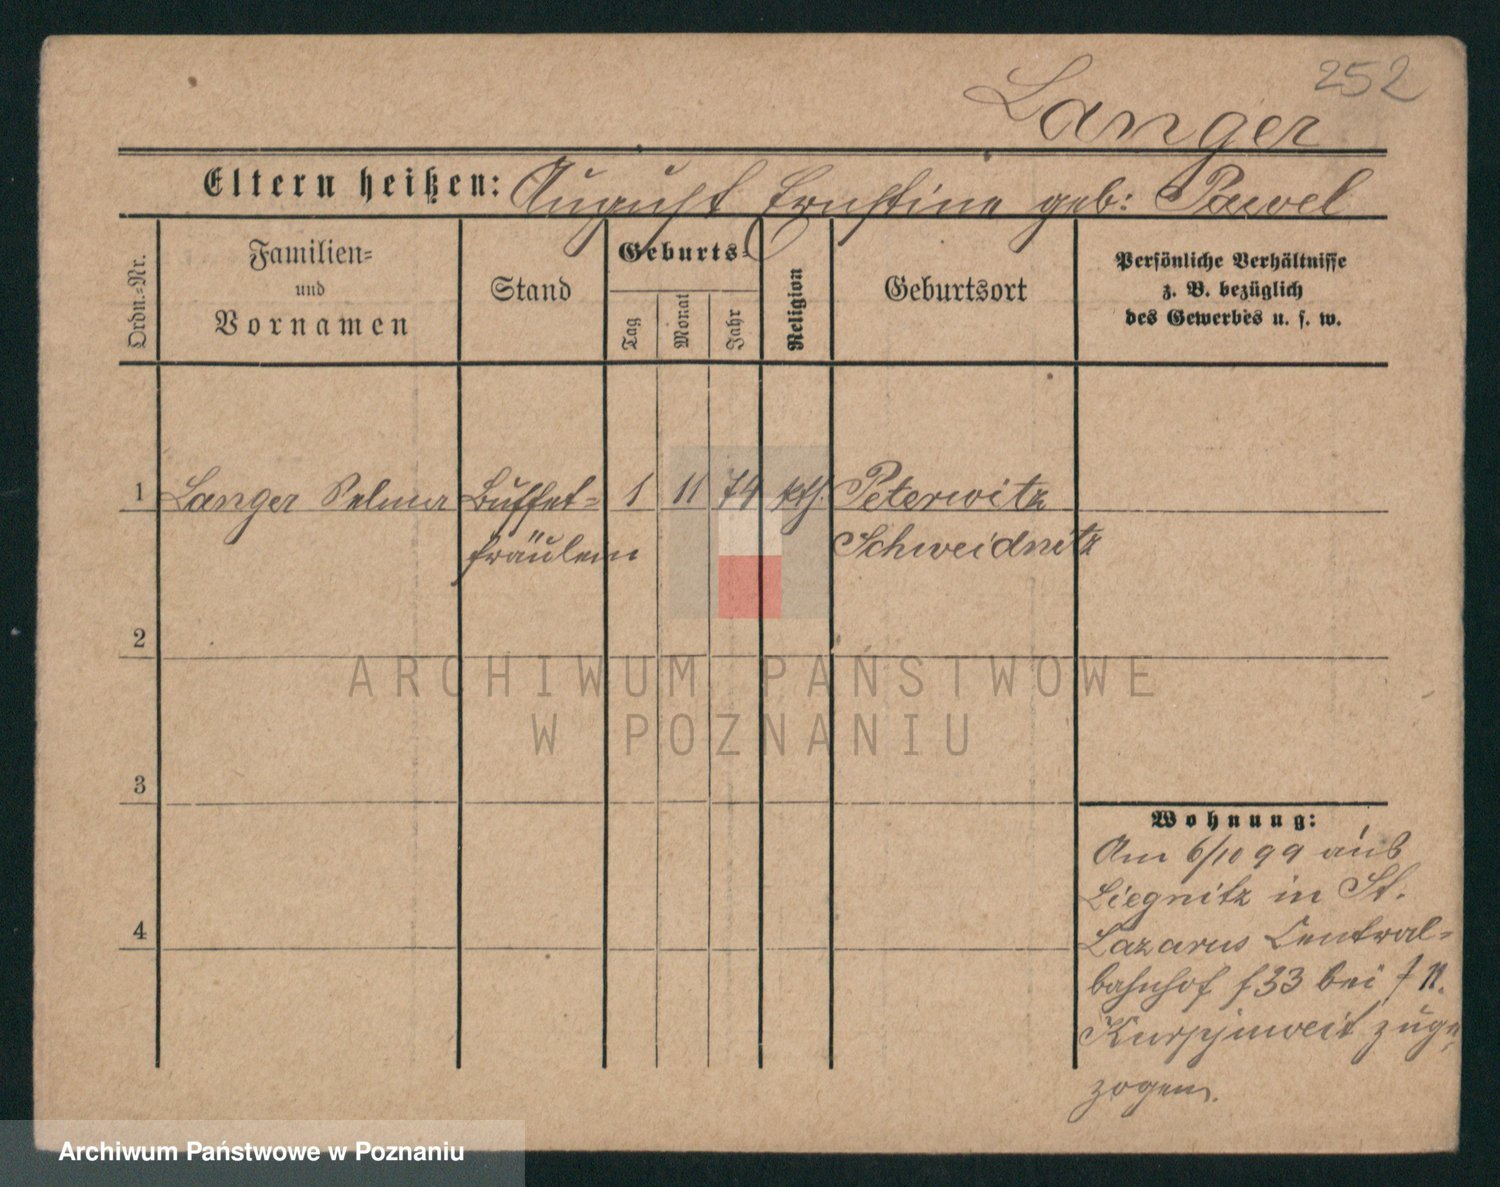 252
Langer
Eltern heißen: August Ernstine geb: Pawel
Ordn.-Nr.
Familien=
und
Vornamen
Stand
Geburts=
Tag
Monat
Jahr
Religion
Geburtsort
Persönliche Verhältnisse
z. B. bezüglich
des Gewerbes u. s. w.
1 Langer Selma Buffet= 1 11 74 kth. Peterwitz
fräulein Schweidnitz
2
ARCHIWUM PAŃSTWOWE
W POZNANIU
3
Wohnung:
Am 6/10 99 aus
Liegnitz in St.
4
Lazarus Central=
bahnhof 33 bei
zuge
zogen.
Archiwum Państwowe w Poznaniu